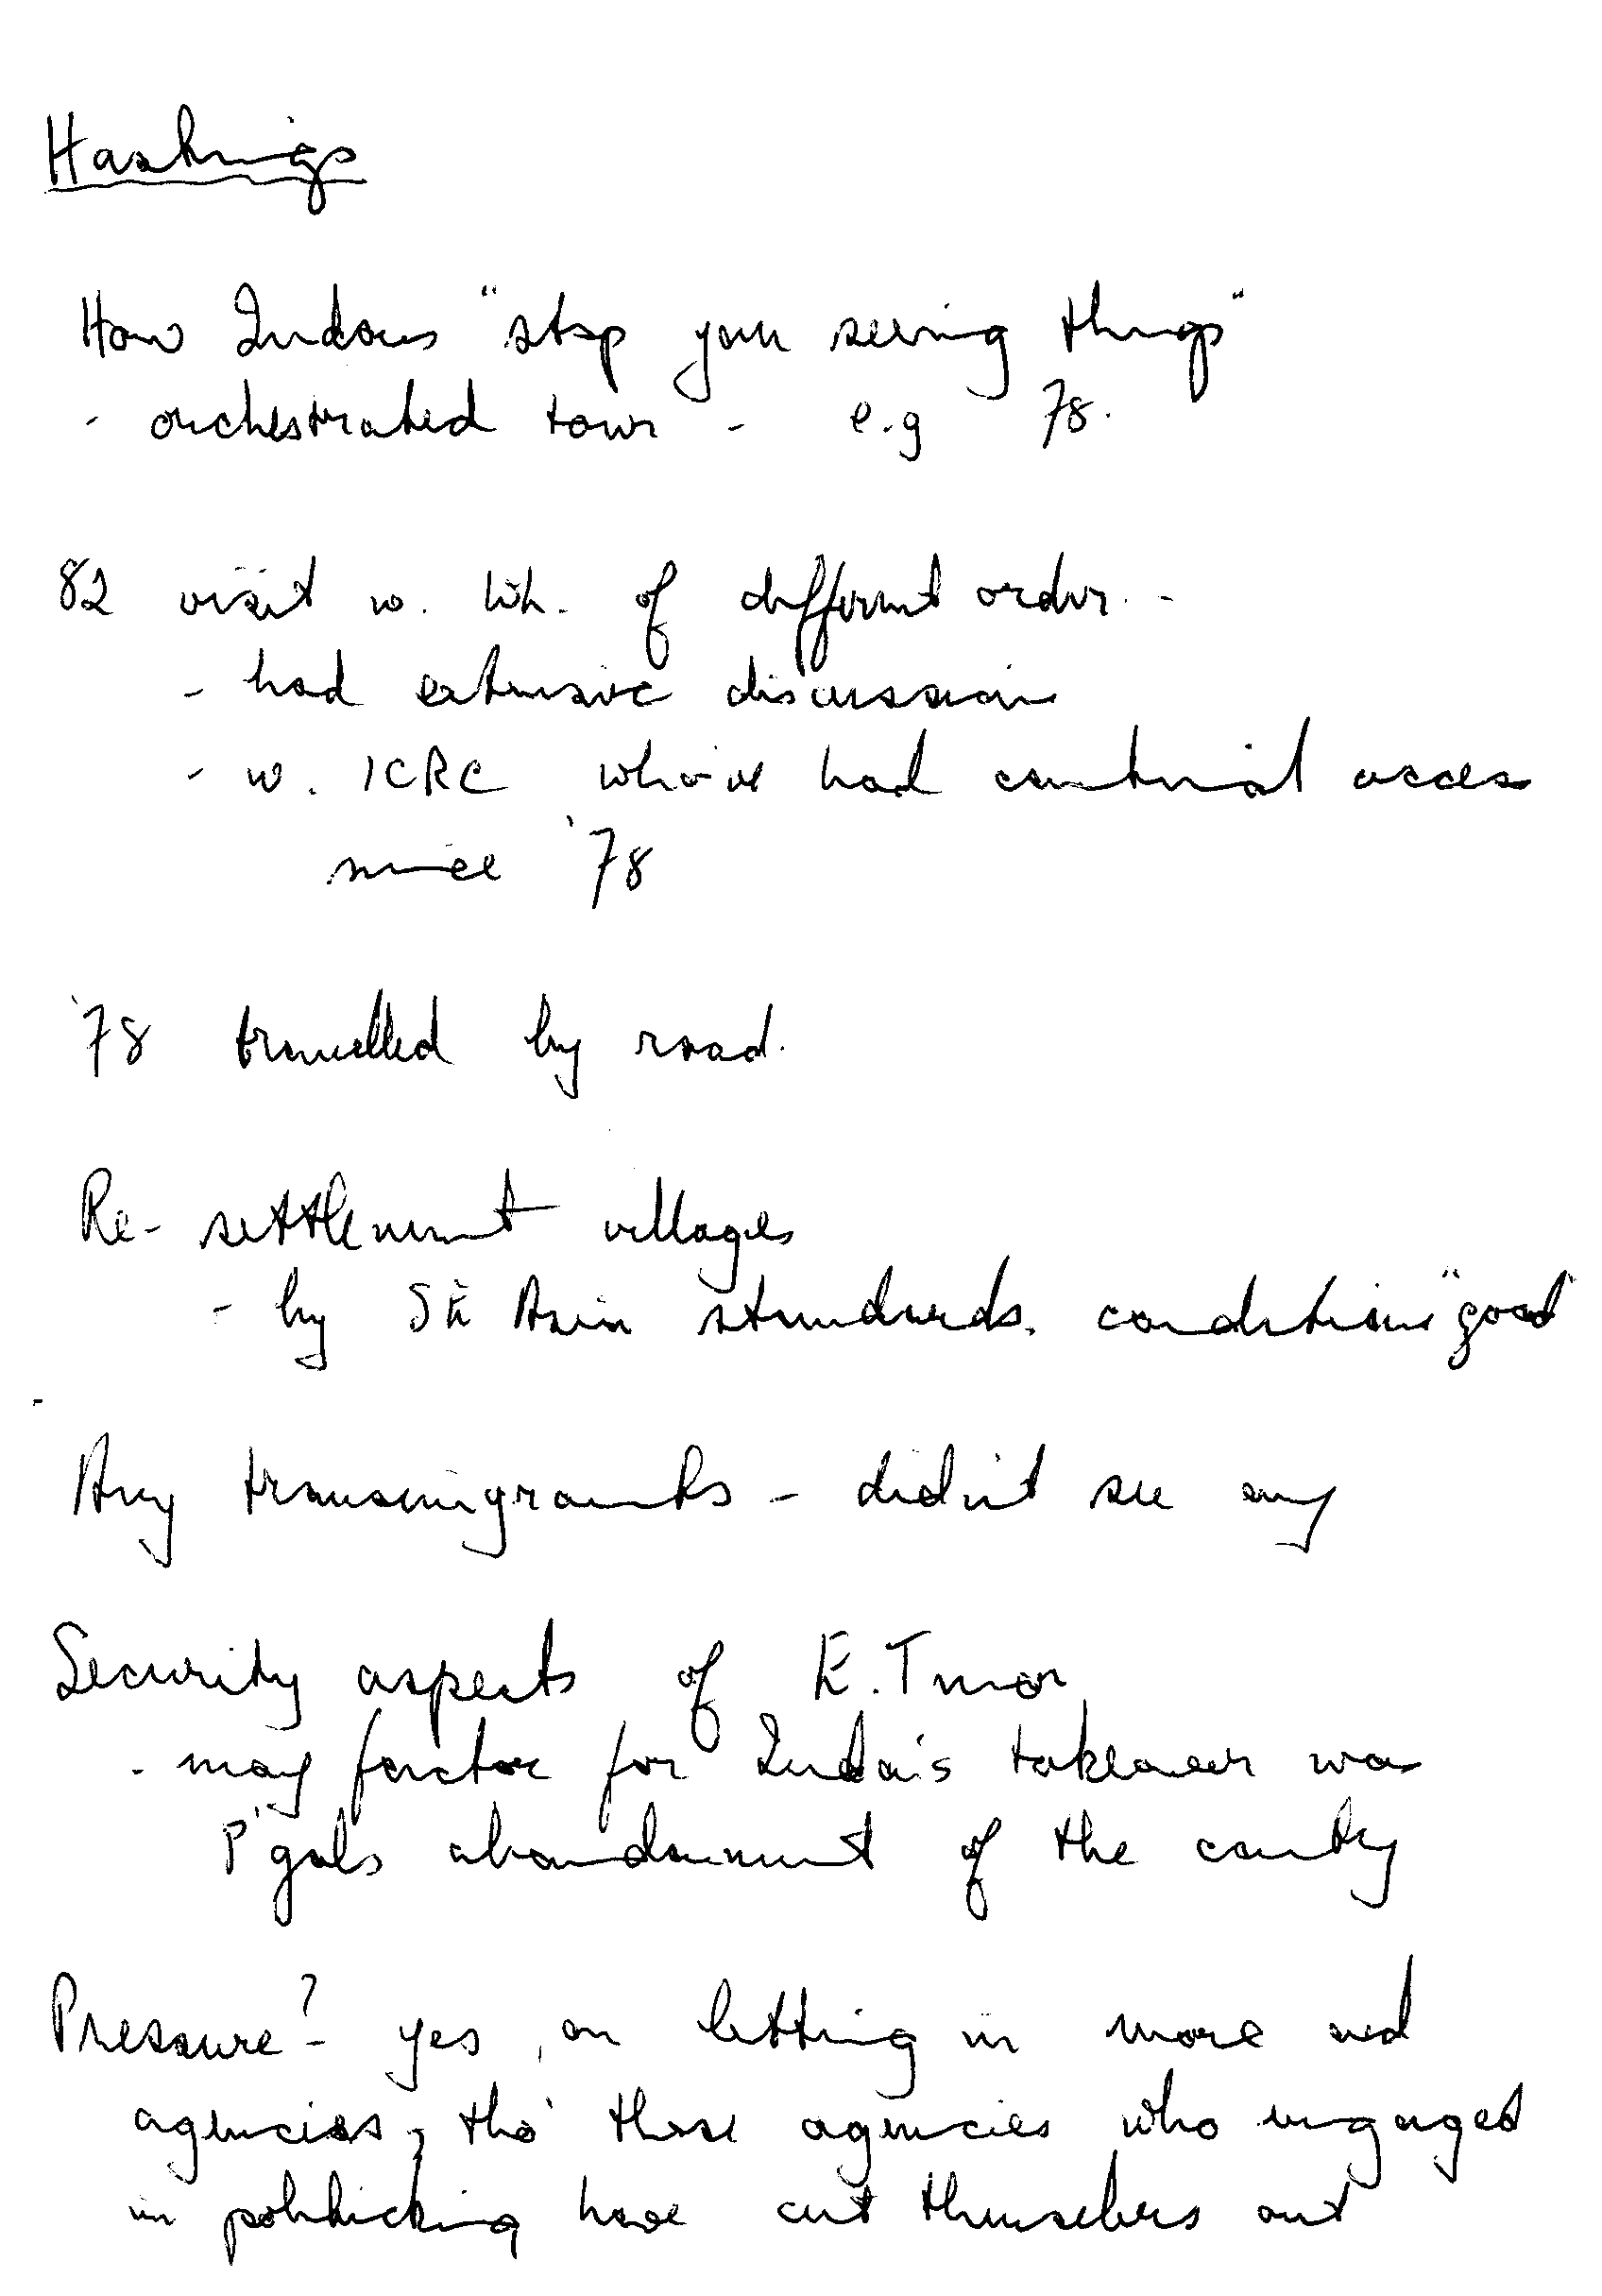 Hastings
How Indons "stop you seeing things"
- orchestrated tour - e.g 78.
82 visit w. of different order. -
- had extensive discussion
- w. ICRC who've had continual access
since '78
'78 travelled by road.
Re-settlement villages
- by SE Asia standards, conditions "good"
Any transmigrants - didn't see any
Security aspects of E. Timor
- maj factor for Indo's takeover was
P'gals abandonment of the country
Pressure? - yes, on letting in more aid
agencies, tho' those agencies who engaged
in politicking have cut themselves out